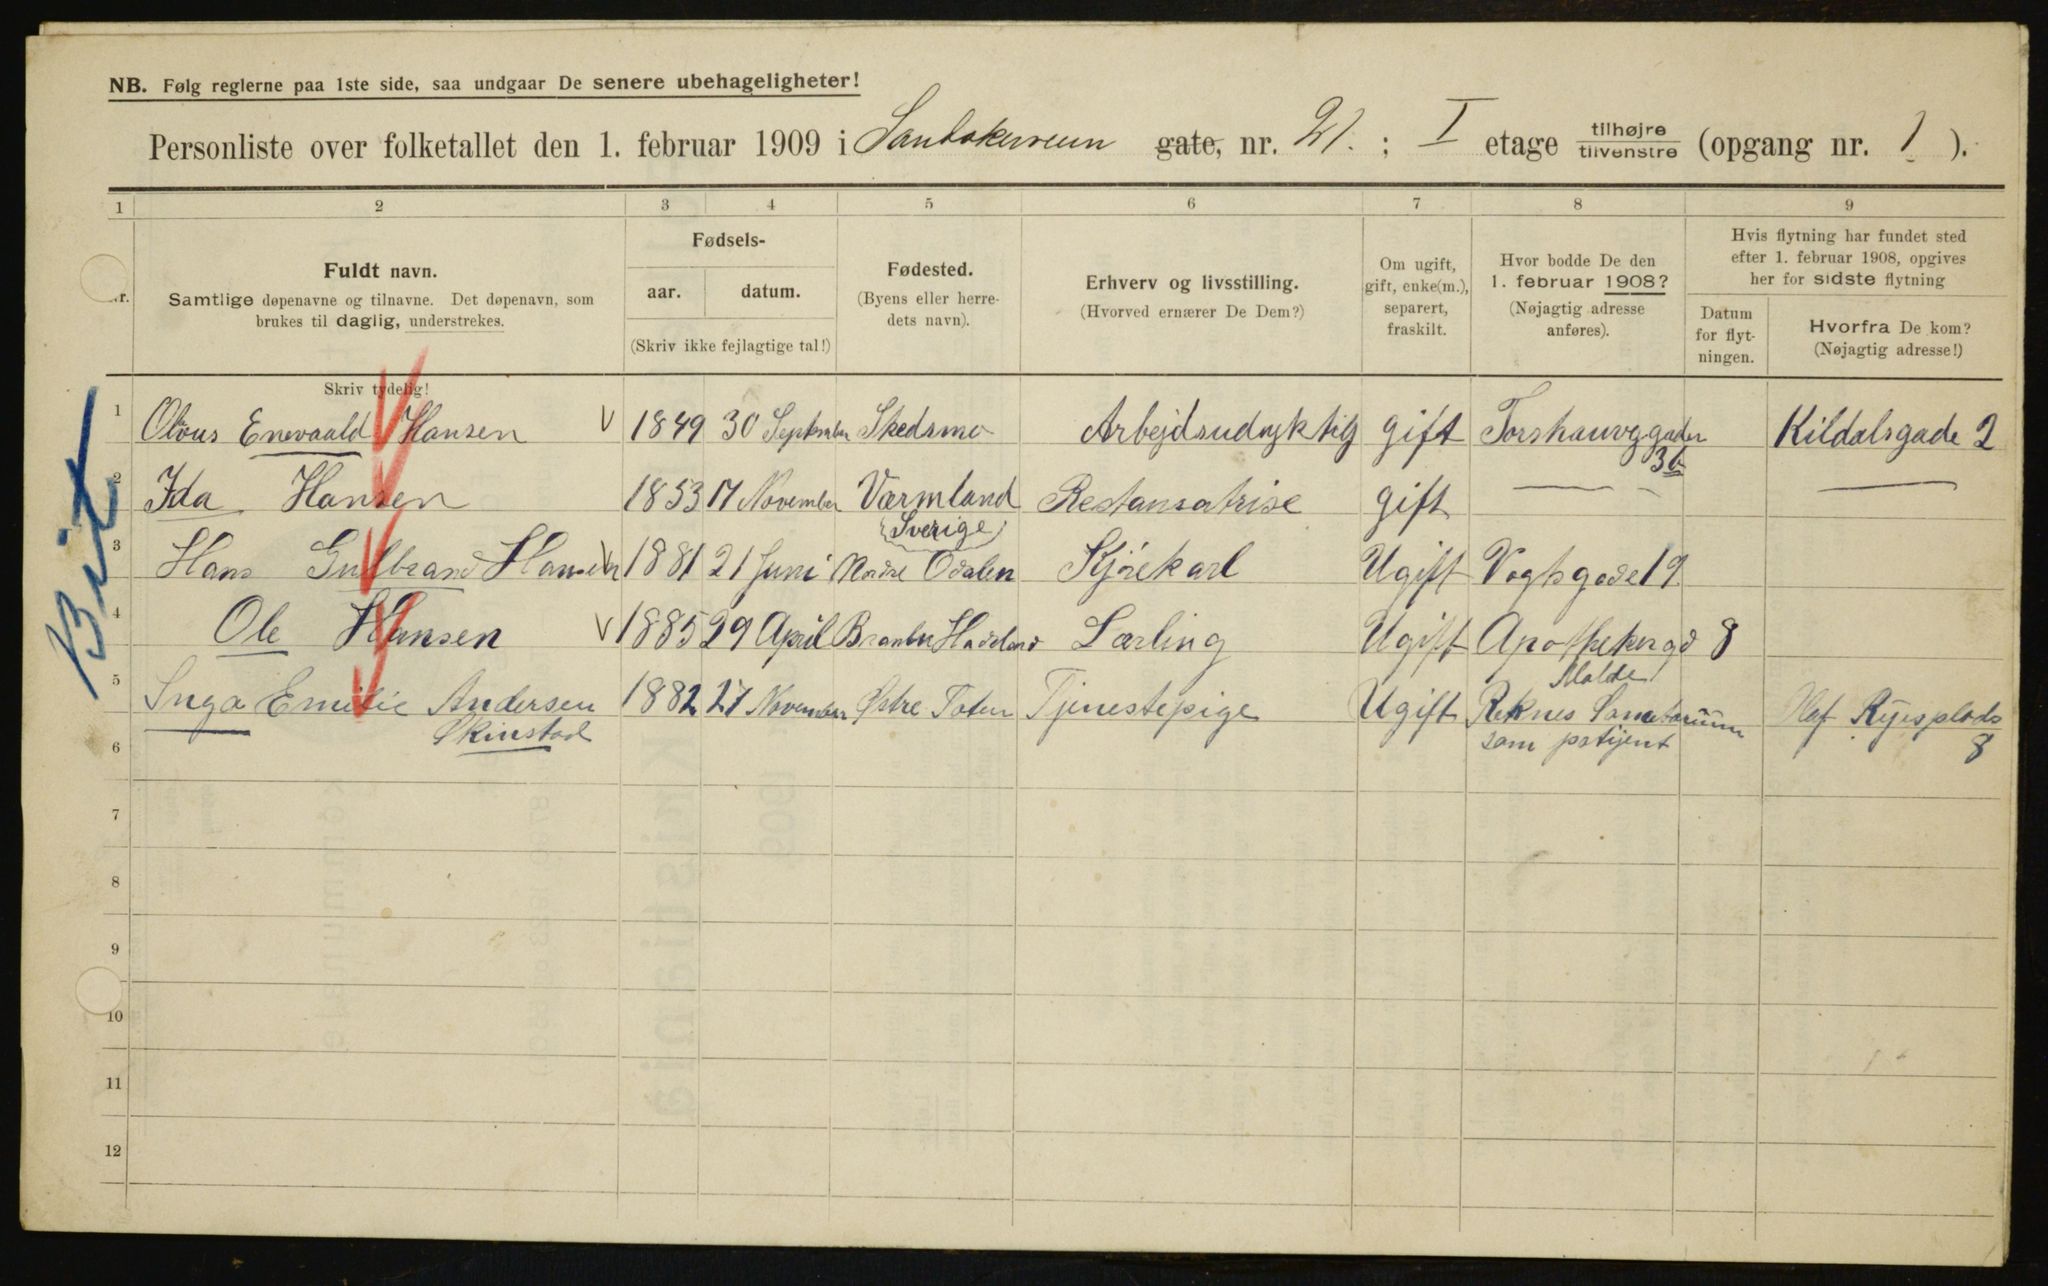 NB. Følg reglerne paa 1ste side, saa undgaar De senere ubehageligheter!
Personliste over folketallet den 1. februar 1909 i Sandakerveien gate, nr. 21. ; I etage tilhøjre tilvenstre (opgang nr. 1 ).
1 2 3 4 5 6 7 8 9
Nr.
Fuldt navn.
Samtlige døpenavne og tilnavne. Det døpenavn, som
brukes til daglig, understrekes.
Skriv tydelig!
Fødsels-
aar. datum.
(Skriv ikke fejlagtige tal!)
Fødested.
(Byens eller herre-
dets navn).
Erhverv og livsstilling.
(Hvorved ernærer De Dem?)
Om ugift,
gift, enke(m.),
separert,
fraskilt.
Hvor bodde De den
1. februar 1908?
(Nøjagtig adresse
anføres).
Hvis flytning har fundet sted
efter 1. februar 1908, opgives
her for sidste flytning
Datum
for flyt-
ningen.
Hvorfra De kom?
(Nøjagtig adresse!)
1 Olvus Enevaald Hansen V 1849 30 September Skedsmo Arbejdsudyktig gift Torshauvggaden 3b Kildalsgade 2
2 Ida Hansen 1853 17 November Værmland Sverige gift
3 Hans Gulbrand Hansen V 1881 21 Juni Nordre Odalen Kjørekarl Ugift Vogtsgade 19
4 Ole Hansen V 1885 29 April Brandbu Hadeland Lærling Ugift Apothekergd 8
Molde
5 Inga Emilie Andersen 1882 27 November Østre Toten Tjenestepige Ugift Reknes Sanatorium Olaf Ryes plads
6 Skinstad som patijent 8
7
8
9
10
11
12